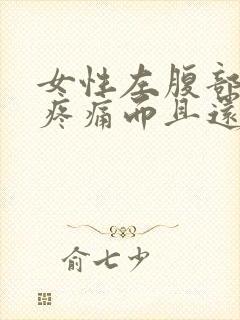 女性左腹部
疼痛而且還
俞七少